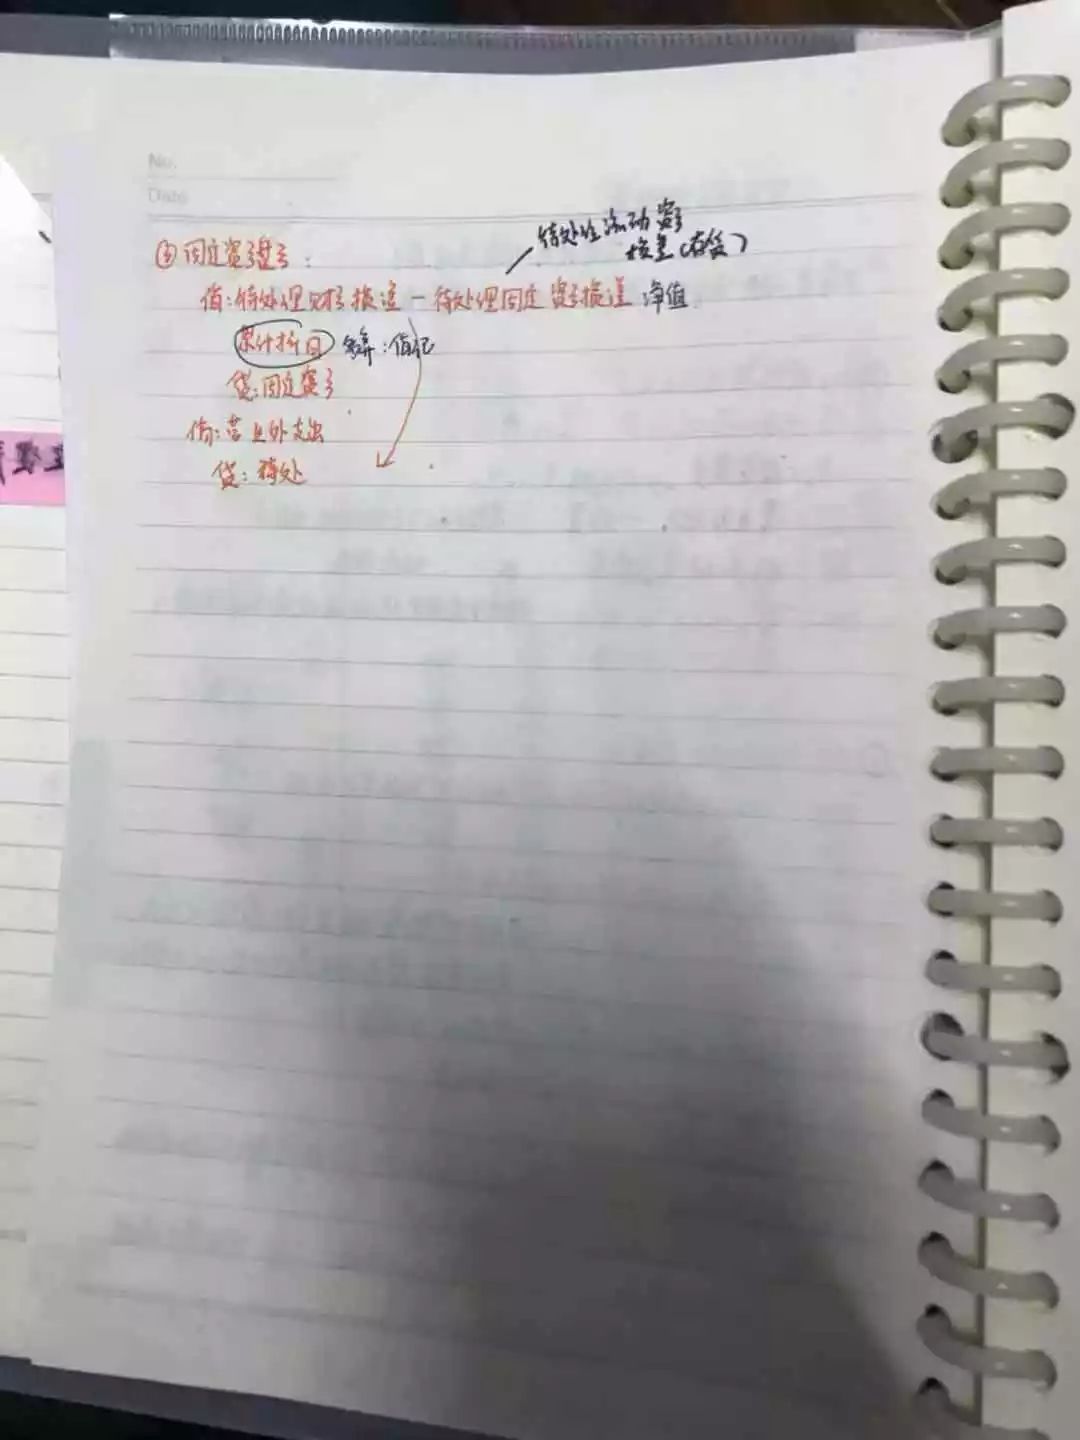 No.
Date
待处理流动资产
损益(存货)
③固定资产盘亏:
借:待处理财产损溢—待处理固定资产损溢 净值
累计折旧 备算:借记
贷:固定资产
借:营业外支出
贷:待处